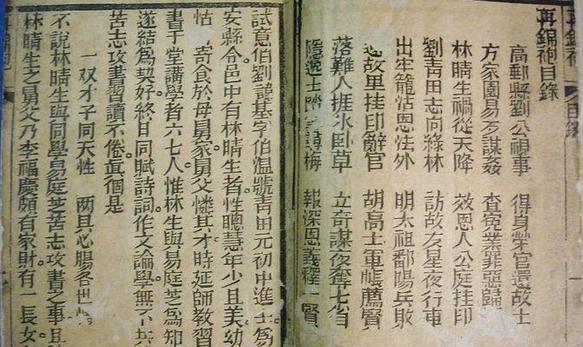 再錦袍
目錄
再錦袍目錄
高郵縣劉公視事 得真榮官還故士
方家園易歹謀姦 查冤業罪惡歸
林晴生禍從天降 效恩人公庭挂印
劉青田志向綠林 訪故友星夜行車
出牢籠沾恩法外 明太祖鄱陽兵敗
故里挂印辭官 胡高士軍帳薦賢
落難人捱氷卧草 立奇謀夜奪七省
隱逸士 尋梅 報深恩義釋一賢
試意伯劉諱基字伯溫號青田元初中進士為
安縣令邑中有林晴生者性聰慧年少且美幼
怙 寄食於母舅家舅父憐其才時延師教習
書于堂講學者六七人惟林生與易庭芝為知
遂結為契好終日同賦詩詞作文論學無不共
苦志攻書習讀不倦眞個是
一双才子同天性 兩具心腸各世
不說林晴生與同學易庭芝苦志攻書之事且
林晴生之舅父乃李福慶頗有家財有一長女